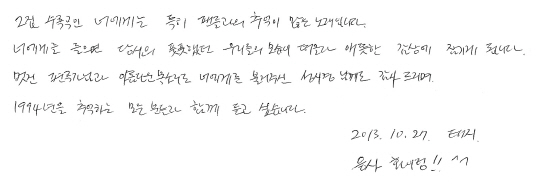 2집 수록곡인 너에게는 특히 팬들과의 추억이 많은 노래입니다.
너에게를 들으면 당시의 풋풋했던 우리들의 모습이 떠올라 애틋한 감상에 젖기도 합니다.
멋진 편곡과 아름다운 목소리로 너에게를 불러주신 성시경 님께도 감사 드리며,
1994년을 추억하는 모든 분들과 함께 듣고 싶습니다.
2013. 10. 27. 태지.
응사 화이팅!! ^^